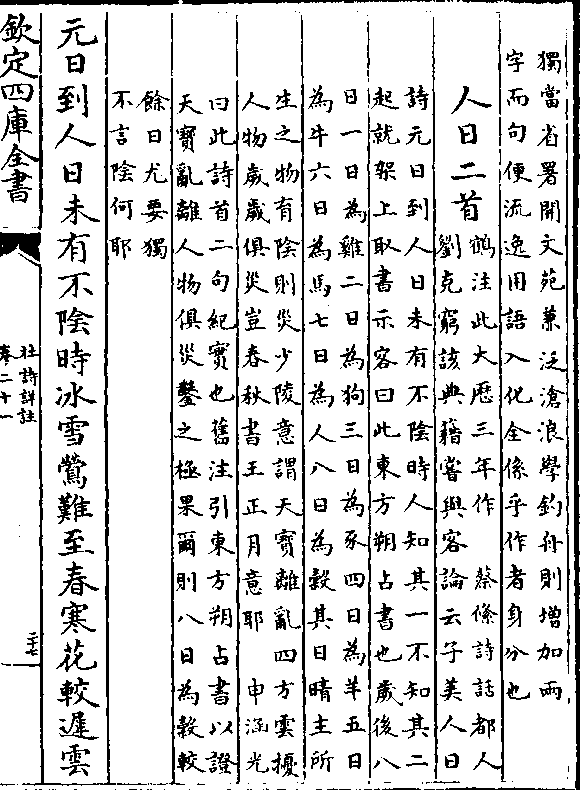 獨當省署開文苑兼泛滄浪學釣舟則增加兩
字而句便流逸用語入化全係乎作者身分也
人日二首
鶴注此大厯三年作 蔡絛詩話都人
劉克窮該典籍嘗與客論云子美人日
詩元日到人日未有不陰時人知其一不知其二
起就架上取書示客曰此東方朔占書也歳後八
日一日為雞二日為狗三日為豕四日為羊五日
為牛六日為馬七日為人八日為穀其日晴主所
生之物育陰則災少陵意謂天寳離亂四方雲擾
人物歳歳俱災豈春秋書王正月意耶 申涵光
曰此詩首二句紀實也舊注引東方朔占書以證
天寳亂離人物俱災鑿之極果爾則八日為穀較
餘日尤要獨
不言陰何耶
元日到人日未有不陰時冰雪鶯難至春寒花較遲雲
欽定四庫全書
杜詩詳註
卷二十一
二十七